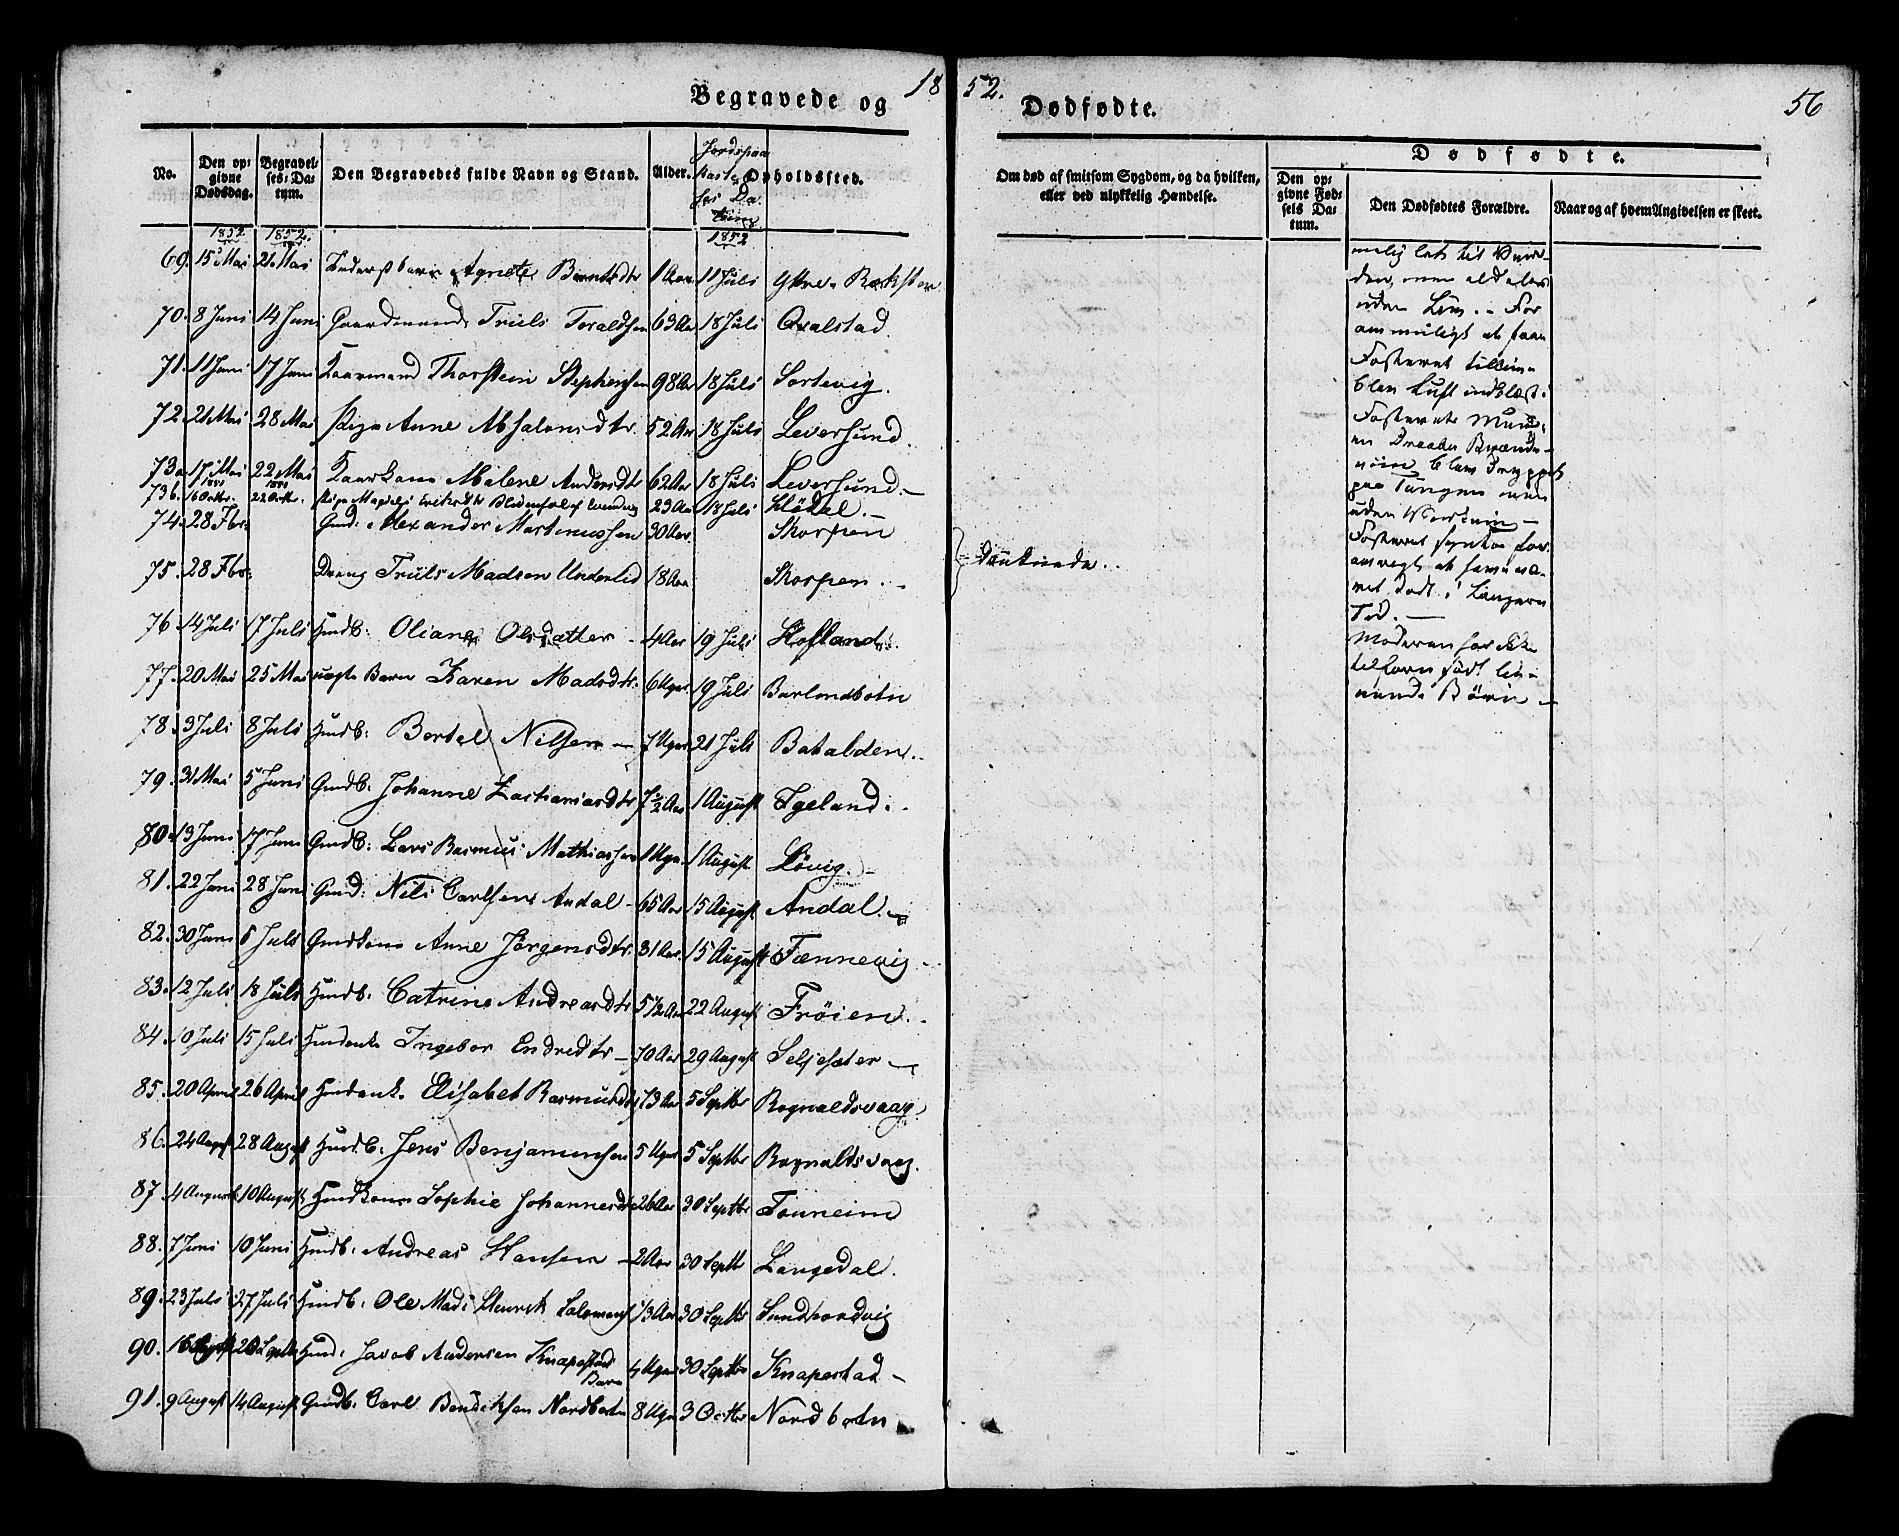 Begravede og 18
No. Den opgivne Dødsdag. Begravelses-Datum. Den Begravedes fulde Navn og Stand. Alder. Jordspaakastelses Datum Opholdssted.
1852 1852. 1852
69. 15 Mai 21 Mai Agnete Berntsdtr 1 Aar 11 Juli Yttre
70. 8 Juni 14 Juni Gaardmand Truls Toraldsen 63 Aar 18 Juli Qvalstad
71. 11 Juni 17 Juni Kaarmand Thorstein Stephensen 98 Aar 18 Juli Sortevig.
72. 21 Mai 28 Mai Pige Anne Absalonsdtr. 52 Aar 18 Juli Leversund.
73a. 17 Mai 22 Mai Kaarkone Malene Andersdtr 62 Aar 18 Juli Leversund.
73b. 16 Octbr. 22 Octbr. Pige 23 Aar 18 Juli
74. 28 Fbr: Gmd: Alexander Martinussen 30 Aar. Skorpen
75. 28 Fbr: Dreng Truls Madsen Underlid 18 Aar Skorpen.
76 14 Juli 17 Juli Hmdb: Oliane Olsdatter 4 Aar 19 Juli Hofland.
77. 20 Mai 25 Mai uægte Barn Karen Madsdtr. 6 Uger 19 Juli Barlendbotn
78. 3 Juli 8 Juli Hmdb: Bertel Nilsen 7 Uger 21 Juli Batalden.
79. 31 Mai 5 Juni Gmdb. Johanne Zachariasdtr 7½ Aar 1 August Igeland.
80. 13 Juni 17 Juni Gmdb: Lars Rasmus Mathiassen 1 Uge 1 August Løvig.
81. 22 Juni 28 Juni Gmd: Nils Carlsen Andal 65 Aar 15 August Andal.
82. 30 Juni 6 Juli Gmdkone Anne Jørgensdtr. 31 Aar. 15 August Fænnevig
83. 12 Juli 18 Juli Hmdb. Catrine Andreasdtr 5½ Aar 22 August Frøien.
84. 10 Juli 15 Juli Hmdenke Ingebor Endredtr 70 Aar 29 August Seljesæter
85. 20 April 26 April Hmdenk. Elisabet Rasmusdtr 73 Aar 5 Septbr Rognaldsvaag.
86. 24 August 28 August Hmdb: Jens Benjaminsen 5 Uger 5 Septbr Rognaldsvaag.
87. 4 August 10 August Hmdkone Sophie Johannesdtr 26 Aar 30 Septbr Tonneim
88. 7 Juni 10 Juni Hmdb. Andreas Hansen 2 Aar 30 Septbr Langedal.
89. 23 Juli 27 Juli Hmdb. Ole Mads Henrik Salomons 13 Aar 30 Septbr
90. 20 Septbr Hmd. Jacob Andersen Knapestad Barn 4 Uger 30 Septbr Knapestad
91. 9 August 14 August Gmdb. Carl Bendiksen Nordbotn 8 Uger 3 Octbr Nordbotn
52. Dødfødte. 56
Om død af smitsom Sygdom, og da hvilken, eller ved ulykkelig Hændelse. Den opgivne Fødsels Datum. Den Dødfødtes Forældre. Naar og af hvem Angivelsen er skeet.
Dødfødte.
Druknede.
melig let til Ver-
den, men aldeles
uden Liv. For
om muligt at faae
Fosteret
blev Luft indblæst i
Fosterets Mun
en Draabe Brænde-
viin blev dryppet
paa Tungen men
uden Virkning
Fosteret syntes for
øvrigt at have væ-
ret dødt i længere
Tid.
Moderen har ikke
tilforn født lev-
ende Børn